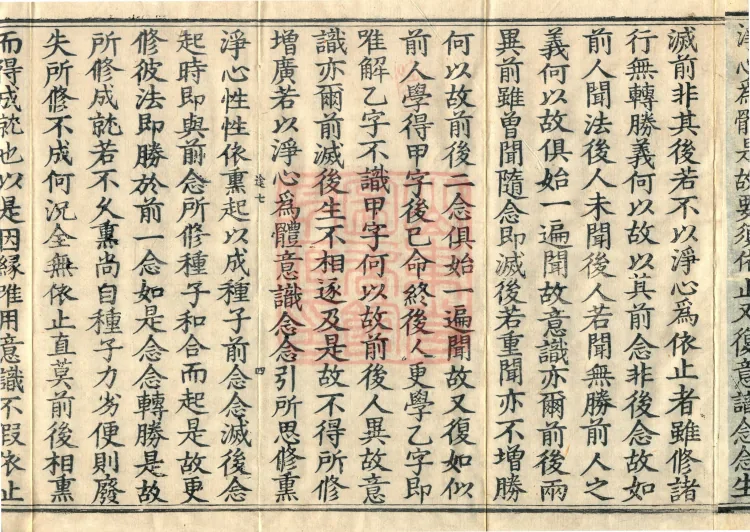 淨心為體是故要須依止又復意識念念生
滅前非其後若不以淨心為依止者雖修諸
行無轉勝義何以故以其前念非後念故如
前人聞法後人未聞後人若聞無勝前人之
義何以故俱始一遍聞故意識亦爾前後兩
異前雖曾聞隨念即滅後若重聞亦不增勝
何以故前後二念俱始一遍聞故又復如似
前人學得甲字後已命終後人更學乙字即
唯解乙字不識甲字何以故前後人異故意
識亦爾前滅後生不相逐及是故不得所修
增廣若以淨心為體意識念念引所思修熏
淨心性性依熏起以成種子前念念滅後念
起時即與前念所修種子和合而起是故更
修彼法即勝於前一念如是念念轉勝是故
所修成就若不久熏尚自種子力劣便則廢
失所修不成何況全無依止直莫前後相熏
而得成就也以是因緣唯用意識不假依止
四